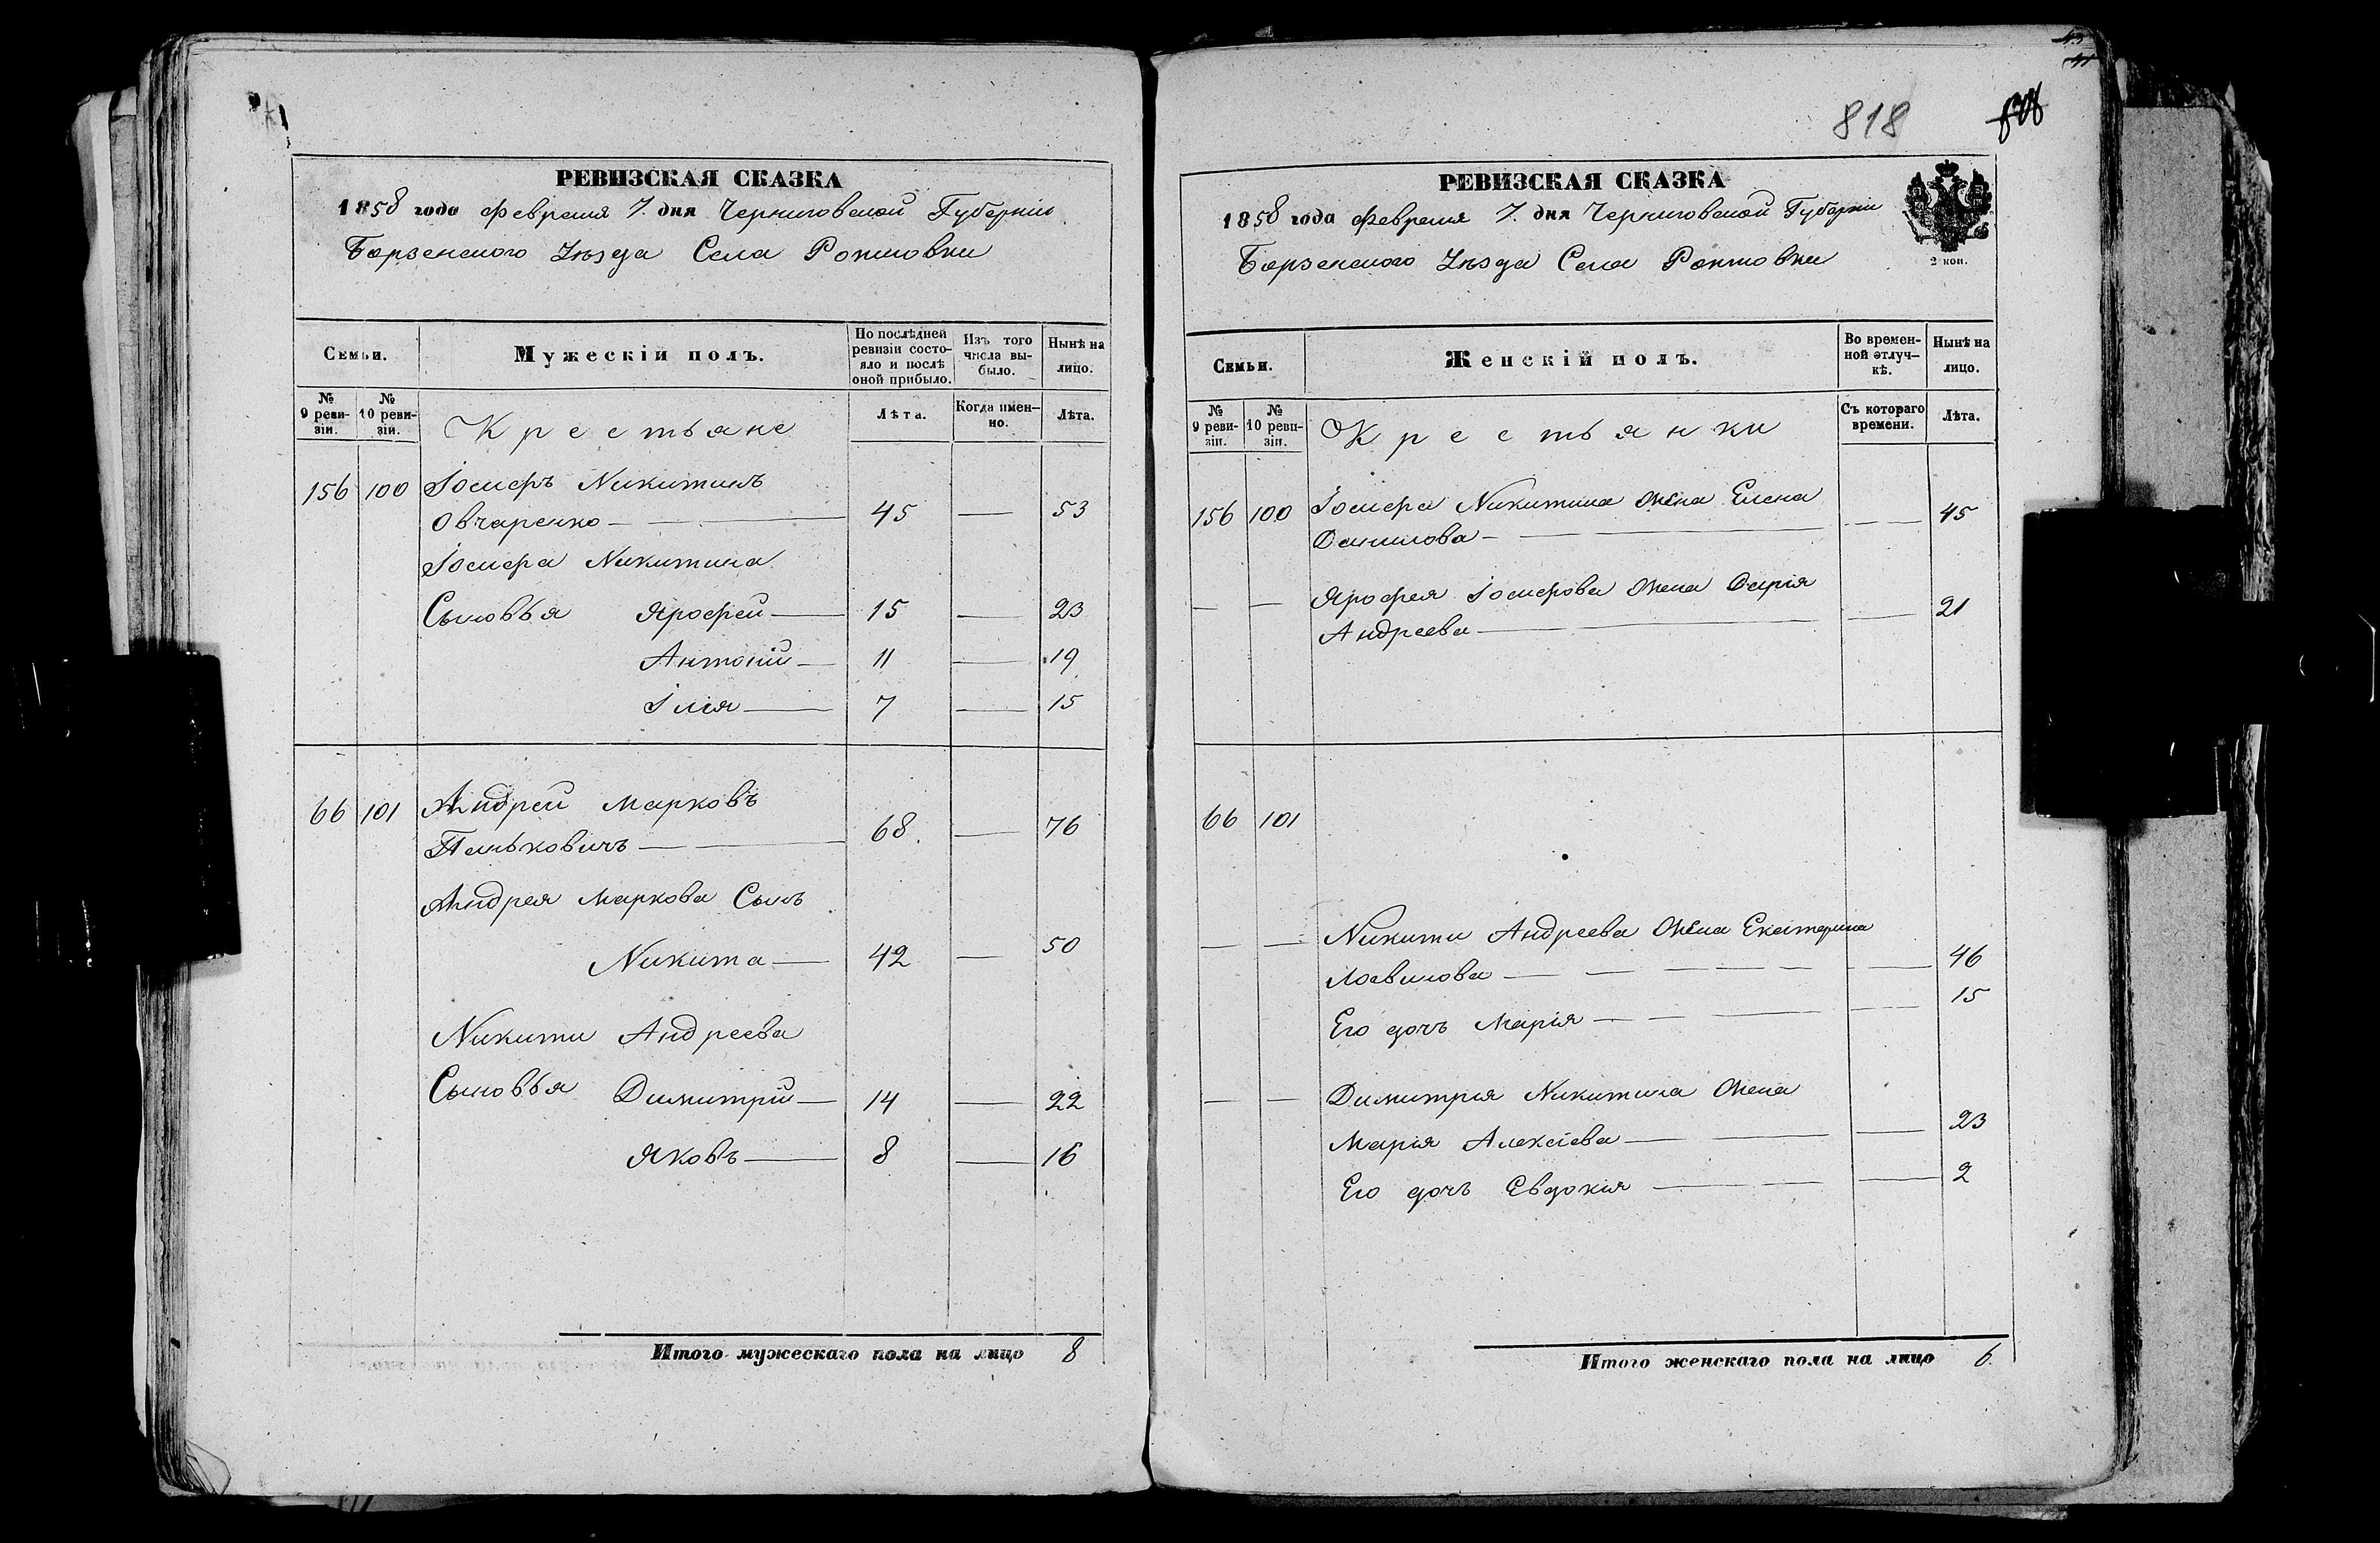 РЕВИЗСКАЯ СКАЗКА
1858 года Февраля 7. дня Черниговской Губерніи
Борзенского Уѣзда Села
Семьи.
Мужескій полъ.
По послѣдней ревизіи состояло и послѣ оной прибыло.
Изъ того числа выбыло.
Нынѣ на лицо.
№ 9 ревизіи.
№ 10 ревизіи.
Крестьяне
Лѣта.
Когда именно.
Лѣта.
156 100 Іосифъ Никитинъ
Овчаренко — 45 — 53
Іосифа Никитина
Сыновья Ярофей — 15 — 23
Антоній — 11 — 19
Ілія — 7 — 15
66 101 Андрей Марковъ
Пеньковичъ — 68. — 76
Андрея Маркова Сынъ
Никита — 42 — 50
Никити Андреева
Сыновья Димитрій — 14 — 22
Яковъ — 8 — 16
Итого мужескаго пола на лицо 8
818
РЕВИЗСКАЯ СКАЗКА
1858 года Февраля 7. дня Черниговской Губерніи
Борзенского Уѣзда Села
2 коп.
Семьи.
Женскій полъ.
Во временной отлучкѣ.
Нынѣ на лицо.
№ 9 ревизіи.
№ 10 ревизіи.
Крестьянки
Съ котораго времени.
Лѣта.
156 100 Іосифа Никитина Жена Елена
Данилова — — 45
— — Ярофея Іосифова Жена Дарія
Андреева — — 21
66 101
— — Никити Андреева Жена Екатерина
— — 46
Его дочь Марія — — 15
— — Димитрія Никитина Жена
Марія Алексіева — — 23
Его дочь Евдокія — — 2
Итого женскаго пола на лицо 6.